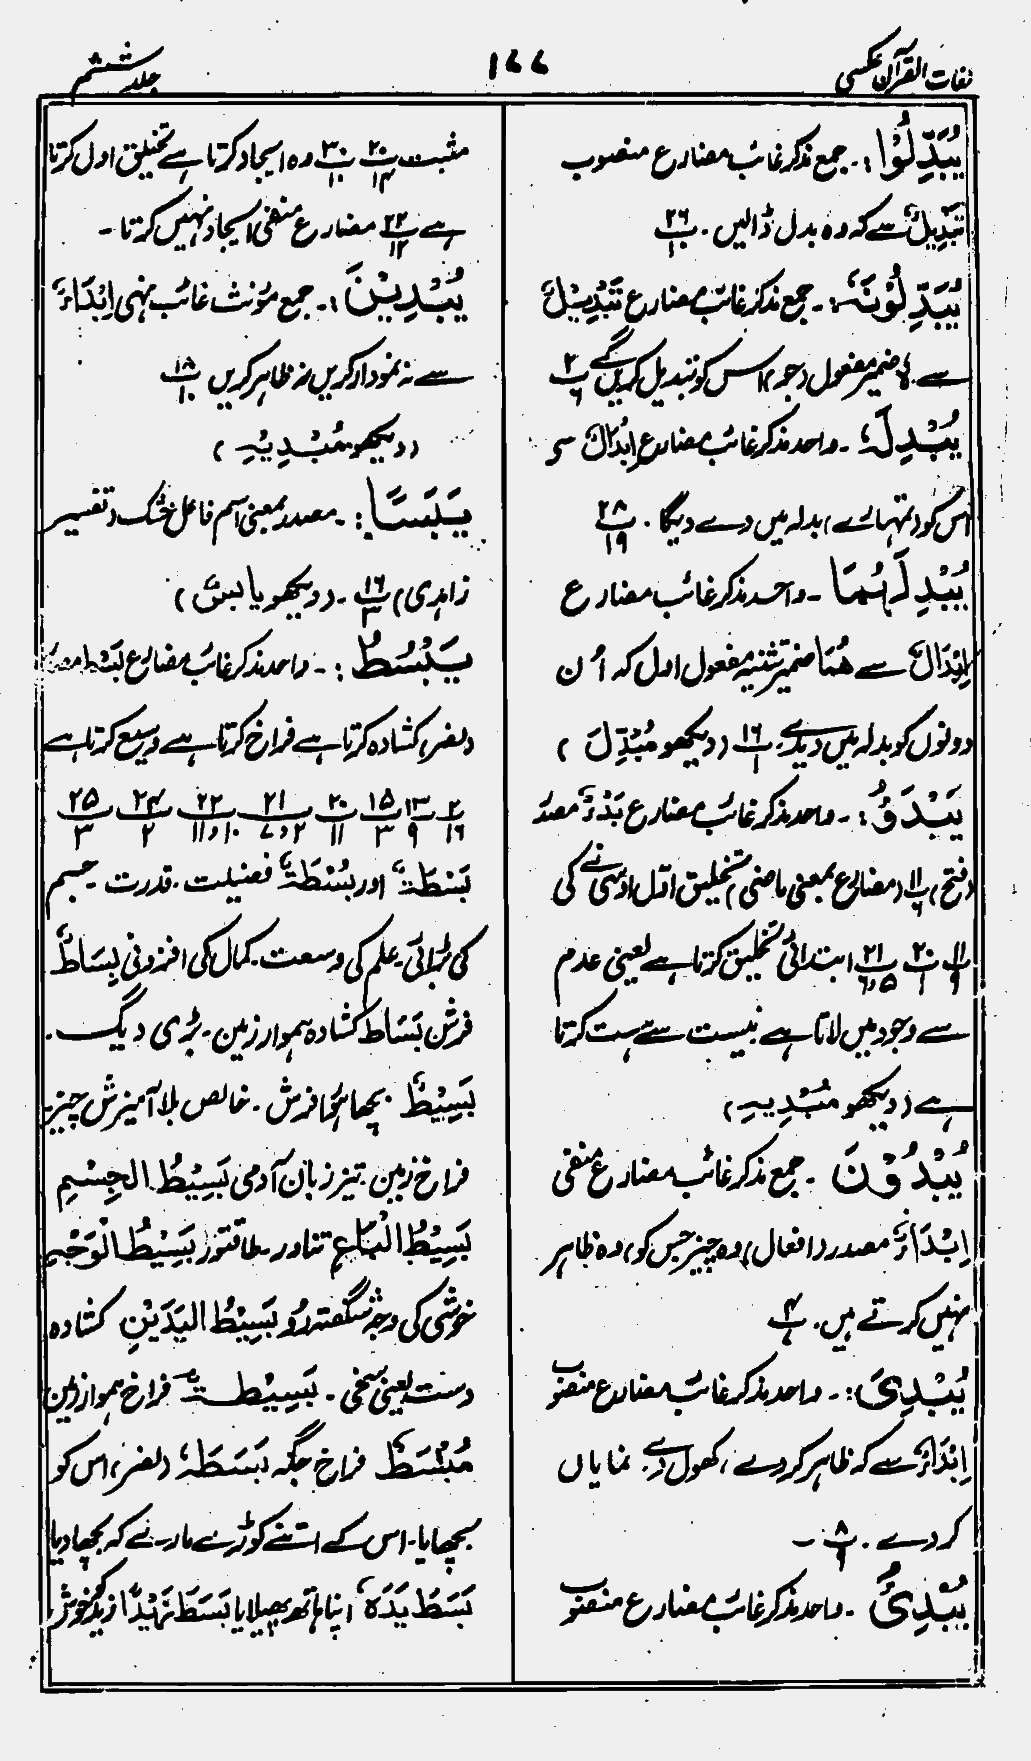 لغات القرآن عکسی
۱۷۷
جلد ششم
یُبَدِّلُوْا:۔ جمع مذکر غائب مضارع منصوب
تَبْدِیْلٌ سے کہ وہ بدل ڈالیں۔ پ۲۶/۱۰
یُبَدِّلُوْنَہٗ:۔ جمع مذکر غائب مضارع تَبْدِیْلٌ
سے۔ ہٗ ضمیر مفعول (جو) اس کو تبدیل کریں گے پ۲/۶
یُبْدِلَہٗ۔ واحد مذکر غائب مضارع اِبْدَالٌ سے
اس کو (تمہارے) بدلہ میں دے دیگا۔ پ۲۸/۱۹
یُبْدِلَہُمَا۔ واحد مذکر غائب مضارع
اِبْدَالٌ سے ھُمَا ضمیر تثنیہ مفعول اول کہ اُن
دونوں کو بدلہ میں دیدے۔ پ۱۶/۱ (دیکھو مُبَدِّلَ)
یَبْدَؤُ:۔ واحد مذکر غائب مضارع بَدْءٌ مصدر
(فتح) پ۱۱/۶ (مضارع بمعنی ماضی) تخلیق اوّل اوسی نے کی
پ۱۱/۹ پ۲۰/۱ پ۲۱/۶،۵ ابتدائی تخلیق کرتا ہے یعنی عدم
سے وجود میں لاتا ہے نیست سے ہست کرتا
ہے (دیکھو مُبْدِیہِ)
یُبْدُوْنَ۔ جمع مذکر غائب مضارع منفی
اِبْدَاءٌ مصدر (افعال) وہ چیز جس کو) وہ ظاہر
نہیں کرتے ہیں۔ پ۴/۷
یُبْدِیَ:۔ واحد مذکر غائب مضارع منصوب
اِبْدَاءٌ سے کہ ظاہر کر دے، کھول دے۔ نمایاں
کر دے۔ پ۸/۹۔
یُبْدِئُ۔ واحد مذکر غائب مضارع منصوب
مثبت پ۲۰/۱۴ پ۳۰/۱۰ وہ ایجاد کرتا ہے تخلیق اول کرتا
ہے پ۲۲/۱۲ مضارع منفی ایجاد نہیں کرتا۔
یُبْدِیْنَ:۔ جمع مؤنث غائب نہی اِبْدَاءٌ
سے نہ نمودار کریں نہ ظاہر کریں پ۱۸/۱۰
(دیکھو مُبْدِیہِ)
یَبَسًا:۔ مصدر بمعنی اسم فاعل خشک (تفسیر
زاہدی) پ۱۶/۳۔ (دیکھو یابسٌ)
یَبْسُطُ:۔ واحد مذکر غائب مضارع بَسْطٌ مصدر
(نصر) کشادہ کرتا ہے فراخ کرتا ہے وسیع کرتا ہے
پ۲/۱۶ پ۱۳/۹ پ۱۵/۳ پ۲۰/۱۱ پ۲۱/۲و۷ پ۲۲/۱۰و۱۱ پ۲۴/۲ پ۲۵/۳
بَسْطَۃٌ اور بُسْطَۃٌ فضیلت۔ قدرت۔ جسم
کی بڑائی۔ علم کی وسعت۔ کمال کی افزونی بِسَاطٌ
فرش بَسَاط کشادہ ہموار زمین۔ بڑی دیگ۔
بَسِیْطٌ بچھا ہُوا فرش۔ خالص بلا آمیزش چیز۔
فراخ زمین۔ تیز زبان آدمی بَسِیْطُ الجِسْمِ
بَسِیْطُ الْبَاعِ تناور۔ طاقتور بَسِیْطُ الْوَجْہِ
خوشی کی وجہ شگفتہ رُو بَسِیْطُ الیَدَیْنِ کشادہ
دست یعنی سخی۔ بَسِیْطَۃٌ فراخ ہموار زمین
مُبْسَطٌ فراخ جگہ بَسَطَہٗ (نصر) اس کو
بچھایا۔ اس کے اتنے کوڑے مارے کہ بچھا دیا
بَسَطَ یَدَہٗ اپنا ہاتھ پھیلایا بَسَطَ زَیْدًا زید کو خوش